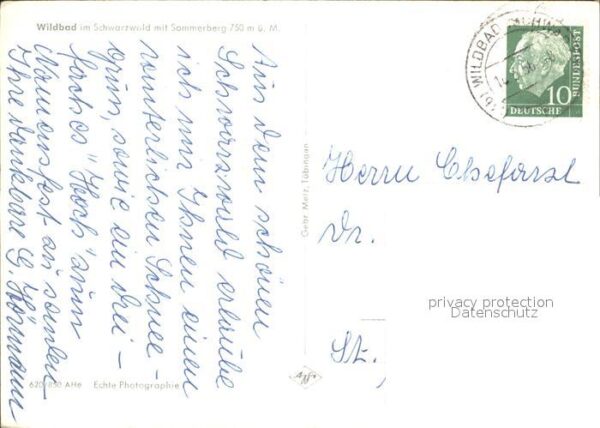 Wildbad im Schwarzwald mit Sommerberg 750 m ü. M.
Aus dem schönen
Schwarzwald erlaube
ich mir Ihnen einen
winterlichen Schnee-
gruß, sowie ein drei-
faches "Hoch" zum
Namensfest zu senden
Ihre dankbare G. Hörmann
620/850 AHe Echte Photographie
Gebr. Metz, Tübingen
WILDBAD
10
DEUTSCHE
BUNDESPOST
Herrn Chefarzt
Dr.
St.
privacy protection
Datenschutz